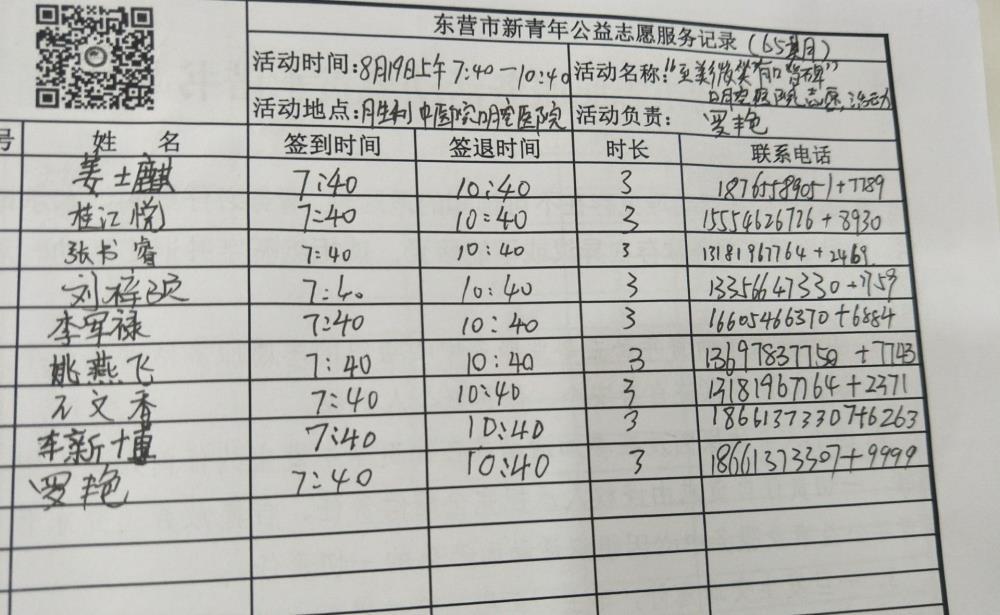 东营市新青年公益志愿服务记录(65期)
活动时间:8月19日上午7:40—10:40 活动名称:"至美微笑有口皆碑"
口腔医院志愿活动
活动地点:胜利中医院口腔医院 活动负责:罗艳
号 姓名 签到时间 签退时间 时长 联系电话
姜士麒 7:40 10:40 3 18765589051+7789
桂江悦 7:40 10:40 3 15554626726+8930
张书睿 7:40 10:40 3 13181967764+2469
刘梓硕 7:40 10:40 3 13356647330+1759
李军禄 7:40 10:40 3 16605466370+6884
姚燕飞 7:40 10:40 3 13697837750+7743
文香 7:40 10:40 3 13181967764+2371
车新博 7:40 10:40 3 18661373307+6263
罗艳 7:40 10:40 3 18661373307+9999